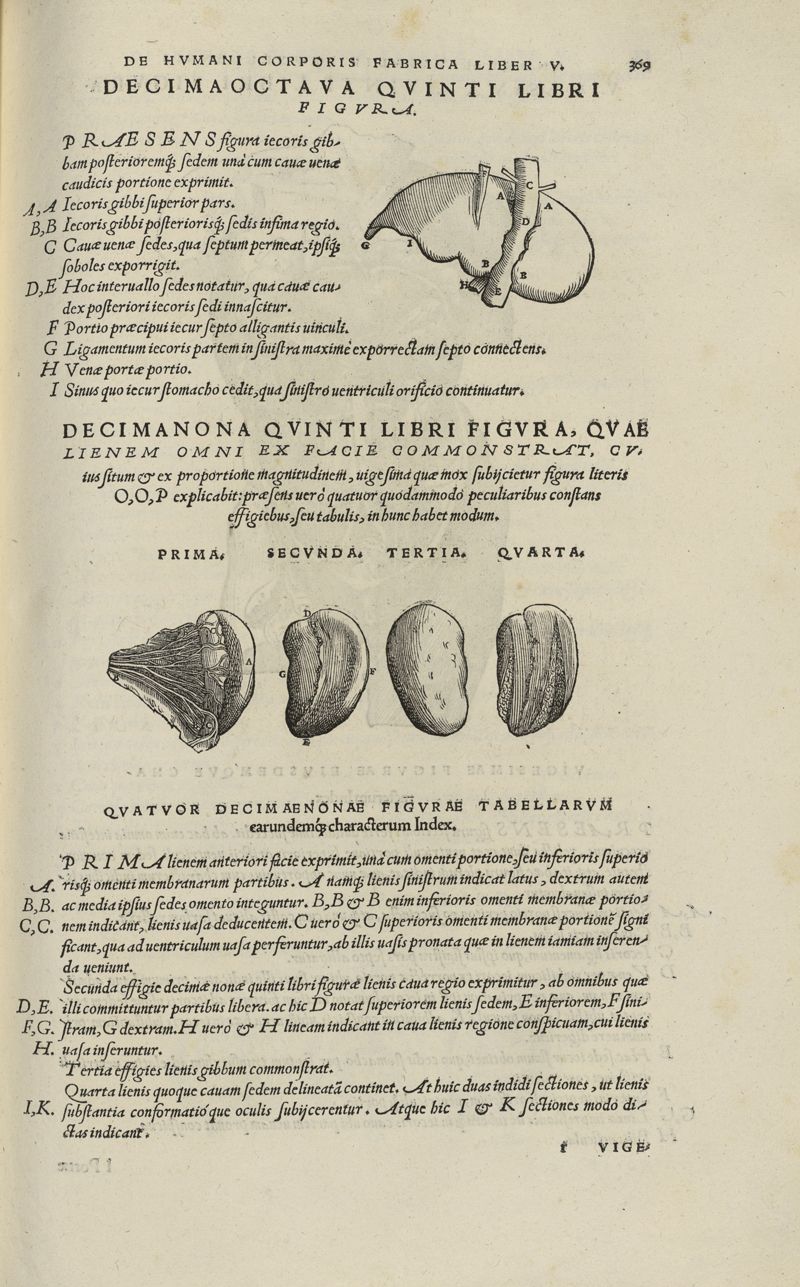 DE HVMANI CORPORIS FABRICA LIBER V. 369
DECIMAOCTAVA QVINTI LIBRI
FIGVRA.
PRAESENS figura iecoris gib-
bam posterioremq́; sedem unà cum cauæ uenæ
caudicis portione exprimit.
A, A Iecoris gibbi superior pars.
B, B Iecoris gibbi posteriorisq́; sedis infima regio.
C Cauæ uenæ sedes, qua septum permeat, ipsiq́;
soboles exporrigit.
D, E Hoc interuallo sedes notatur, qua cauæ cau-
dex posteriori iecoris sedi innascitur.
F Portio præcipui iecur septo alligantis uinculi.
G Ligamentum iecoris partem in sinistra maximè exporrectam septo connectens.
H Venæ portæ portio.
I Sinus quo iecur stomacho cedit, qua sinistro uentriculi orificio continuatur.
C
A
A
D
G
I
B
B
H
E
DECIMANONA QVINTI LIBRI FIGVRA, QVAE
LIENEM OMNI EX FACIE COMMONSTRAT, CV-
ius situm & ex proportione magnitudinem, uigesima quæ mox subijcietur figura literis
O, O, P explicabit: præsens uerò quatuor quodammodo peculiaribus constans
effigiebus, seu tabulis, in hunc habet modum.
PRIMA. SECVNDA. TERTIA. QVARTA.
A
B
D
G
F
E
QVATVOR DECIMAENONAE FIGVRAE TABELLARVM
earundemq́; characterum Index.
PRIMA lienem anteriori facie exprimit, unà cum omenti portione, seu inferioris superio
A. risq́; omenti membranarum partibus. A namq́; lienis sinistrum indicat latus, dextrum autem
B, B. ac media ipsius sedes omento integuntur. B, B & B enim inferioris omenti membranæ portio-
C, C. nem indicant, lienis uasa deducentem. C uerò & C superioris omenti membranæ portionē signi
ficant, qua ad uentriculum uasa perferuntur, ab illis uasis pronata quæ in lienem iamiam inseren-
da ueniunt.
Secunda effigie decimæ nonæ quinti libri figuræ lienis caua regio exprimitur, ab omnibus quæ
D, E. illi committuntur partibus libera. ac hic D notat superiorem lienis sedem, E inferiorem, F sini-
F, G. stram, G dextram. H uerò & H lineam indicant in caua lienis regione conspicuam, cui lienis
H. uasa inseruntur.
Tertia effigies lienis gibbum commonstrat.
Quarta lienis quoque cauam sedem delineatā continet. At huic duas indidi sectiones, ut lienis
I, K. substantia conformatióque oculis subijcerentur. Atque hic I & K sectiones modò di-
ctas indicant.
f VIGE-